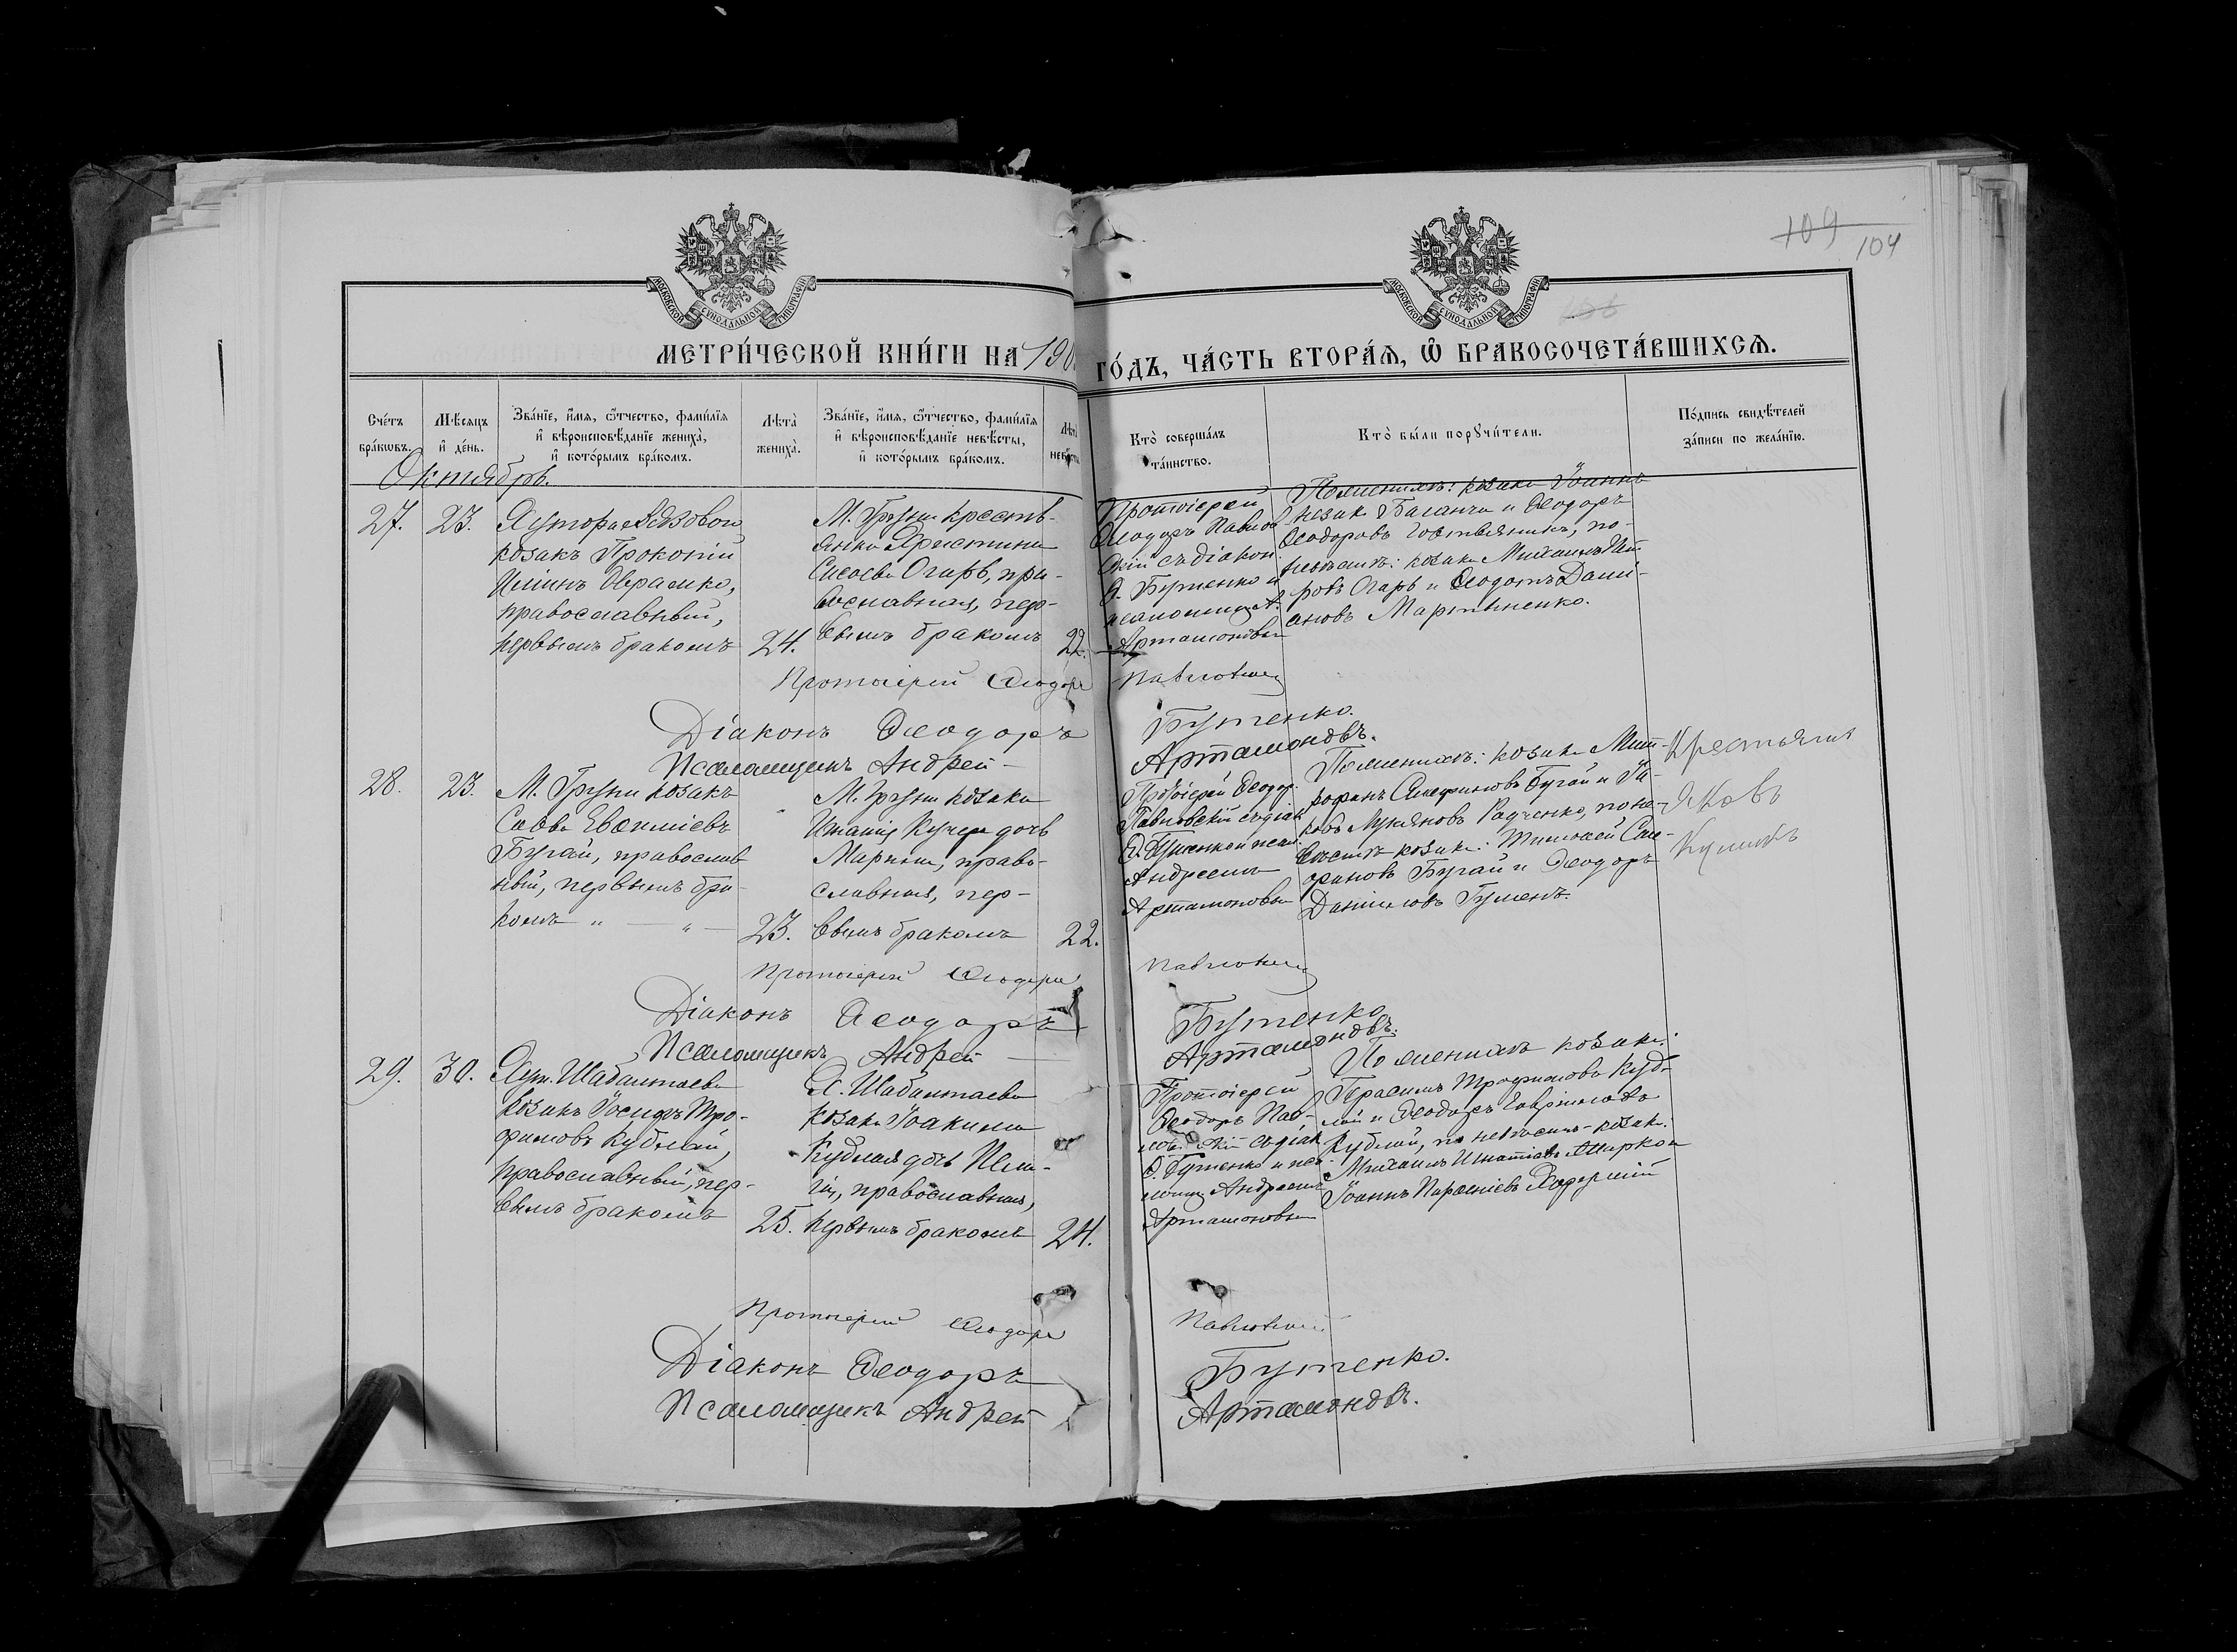 109
104
МОСКОВСКОЙ СѴНОДАЛЬНОЙ ТИПОГРАФІИ
МОСКОВСКОЙ СѴНОДАЛЬНОЙ ТИПОГРАФІИ
МЕТРИ́ЧЕСКОЙ КНИ́ГИ НА 190
ГО́ДЪ, ЧА́СТЬ ВТОРА́Я, Ѽ БРАКОСОЧЕТА́ВШИХСЯ.
Сче́тъ бра́кѡвъ.
Мѣ́сяцъ и҆ де́нь.
Зва́нїе, и҆́мя, ѻ҆́тчество, фами́лїя
и҆ вѣроисповѣ́данїе жениха̀,
и҆ кото́рымъ бра́комъ.
Лѣта̀ жениха̀.
Зва́нїе, и҆́мя, ѻ҆́тчество, фами́лїя
и҆ вѣроисповѣ́данїе невѣ́сты,
и҆ кото́рымъ бра́комъ.
Лѣта̀
Кто̀ соверша́лъ
та́инство.
Кто̀ бы́ли порꙋчи́тели.
По́дпись свидѣ́телей
за́писи по жела́нїю.
Октябрь.
27.
23.
козакъ Прокопій
православный,
первымъ бракомъ
24.
М. Груни крестъ-
янка Христина
Сисоева Огарь, пра-
вославная, пер-
вымъ бракомъ
22.
Протоіерей
Ѳеодоръ Павлов-
скій съ діакон.
Ѳ. Бутенко и
псаломщ. А.
Артамоновым
По женихѣ: козаки Іоаннъ
Баганчи и Ѳеодоръ
Ѳеодоровъ
невѣстѣ: козаки Михаилъ
ровъ Огарь и Ѳеодотъ Дани-
Мартыненко.
Протоіерей Ѳеодоръ Павловскій
Діаконъ Ѳеодоръ Бутенко.
Псаломщикъ Андрей Артамоновъ.
28.
23.
М. Груни козакъ
Савва Евѳиміевъ
Бугай, православ
ный, первымъ бра-
комъ " — " —
23.
М. Груни козака
Игнатія Кучера дочь
Марина, право-
славная, пер-
вымъ бракомъ
22.
Протоіерей Ѳеодор.
Павловскій съ діак
Ѳ. Бутенкой псал.
Андреемъ
Артамоновым
По женихѣ: козаки Мит-
рофанъ Бугай и Яа-
ковъ Лукяновъ Радченко, по не-
вѣстѣ козаки: Тимоѳей
Бугай и Ѳеодоръ
Даниловъ Гуменъ.
Крестьянин
Яковъ
Протоіерей Ѳеодоръ Павловскій
Діаконъ Ѳеодоръ Бутенко
Псаломщикъ Андрей — Артамоновъ.
29.
30.
Хут. Шабалтаева
козакъ Іосифъ Тро-
фимовъ Кублай,
православный, пер-
вымъ бракомъ
25.
Х. Шабалтаева
козака Іоакима
Кублая дочь
православная,
первымъ бракомъ
24.
Протоіерей
Ѳеодоръ Пав-
ловскій съ діак
Ѳ. Бутенко и пса-
ломщ Андреемъ
Артамоновым
По женихѣ козаки:
Герасимъ Трофимовъ Куб-
лай и Ѳеодоръ Гавріиловъ
Кублай, по невѣстѣ козаки:
Михаилъ Игнатіевъ
Іоаннъ
Протоіерей Ѳеодоръ Павловскій
Діаконъ Ѳеодоръ Бутенко.
Псаломщикъ Андрей Артамоновъ.